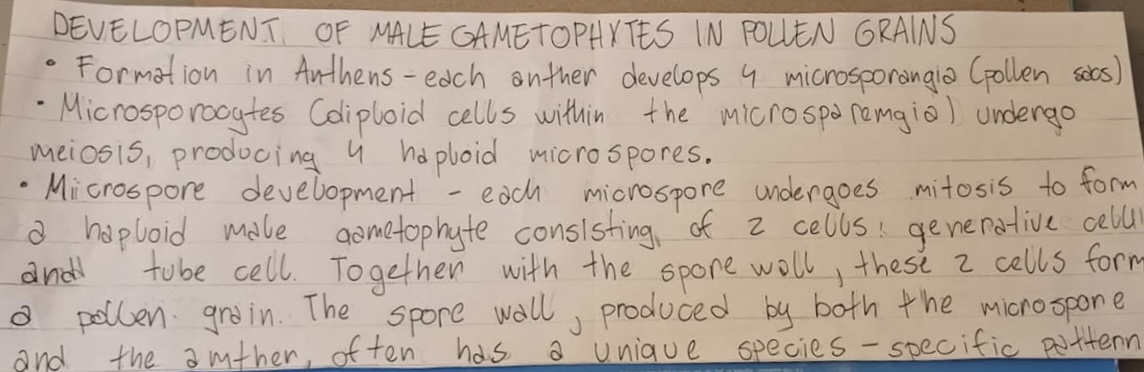 DEVELOPMENT OF MALE GAMETOPHYTES IN POLLEN GRAINS
• Formation in Anthens - each anther develops 4 microsporangia (pollen sacs)
• Microsporocytes (diploid cells within the microsparemgia) undergo
meiosis, producing 4 haploid microspores.
• Miicrospore development - each microspore undergoes mitosis to form
a haploid male gametophyte consisting of 2 cells: generative cell
and tube cell. Together with the spore wall, these 2 cells form
a pollen grain. The spore wall, produced by both the microspone
and the amther, often has a unique species-specific pattenn